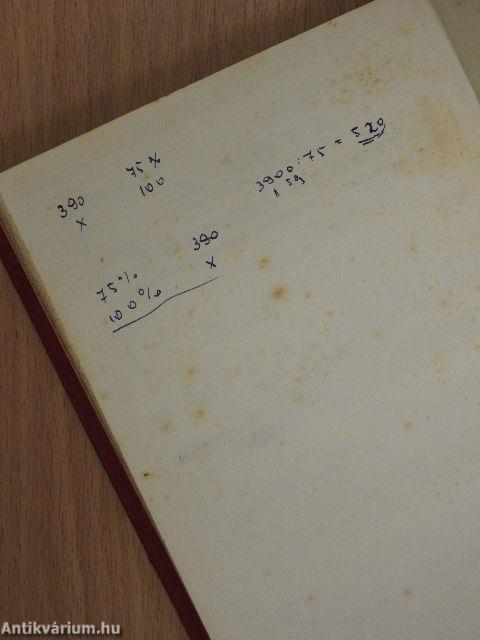 390 75%
x 100
75% 390
100% x
3900:75 = 520
Antikvárium.hu